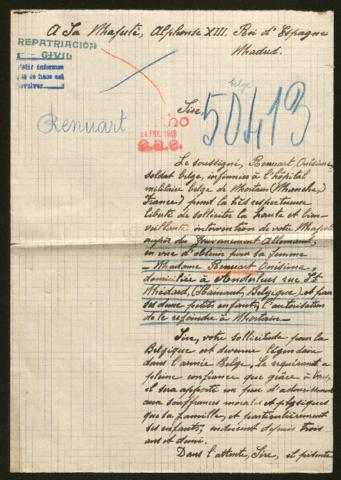 A Sa Majesté, Alphonse XIII. Roi d'Espagne
Madrid.
REPATRIACIÓN
CIVIL
Pedir informes
belge
50413
Renuart
Sire,
24 ENE. 1918
Le soussigné, Renuart Onésime,
soldat belge, infirmier à l'hôpital
militaire belge de Mortain (Manche,
France) prend la très respectueuse
liberté de solliciter la haute et bien-
veillante intervention de votre Majesté
auprès du Gouvernement Allemand,
en vue d'obtenir pour sa femme
– Madame Renuart Onésime
domiciliée à Anderlues rue St
Médard, (Hainaut, Belgique) et pour
ses deux petits enfants, l'autorisation
de le rejoindre à Mortain –
Sire, votre sollicitude pour la
Belgique est devenue légendaire
dans l'armée Belge. Le requérant a
pleine confiance que grâce à vous,
il sera apporté un peu d'adoucissement
aux souffrances morales et physiques
que sa famille, et particulièrement
ses enfants, endurent depuis trois
ans et demi.
Dans l'attente, Sire, et